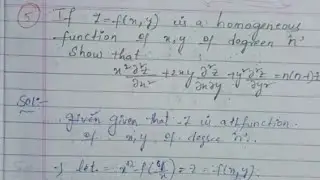 ⑤ If Z = f(x,y) is a homogeneous
function of x,y of degreen 'n'
Show that
x² ∂²z/∂x² + 2xy ∂²z/∂x∂y + y² ∂²z/∂y² = n(n-1)z
Sol:-
Given given that z is a function
of x,y of degree 'n'.
let = xⁿ f(y/x) = Z = f(x,y).